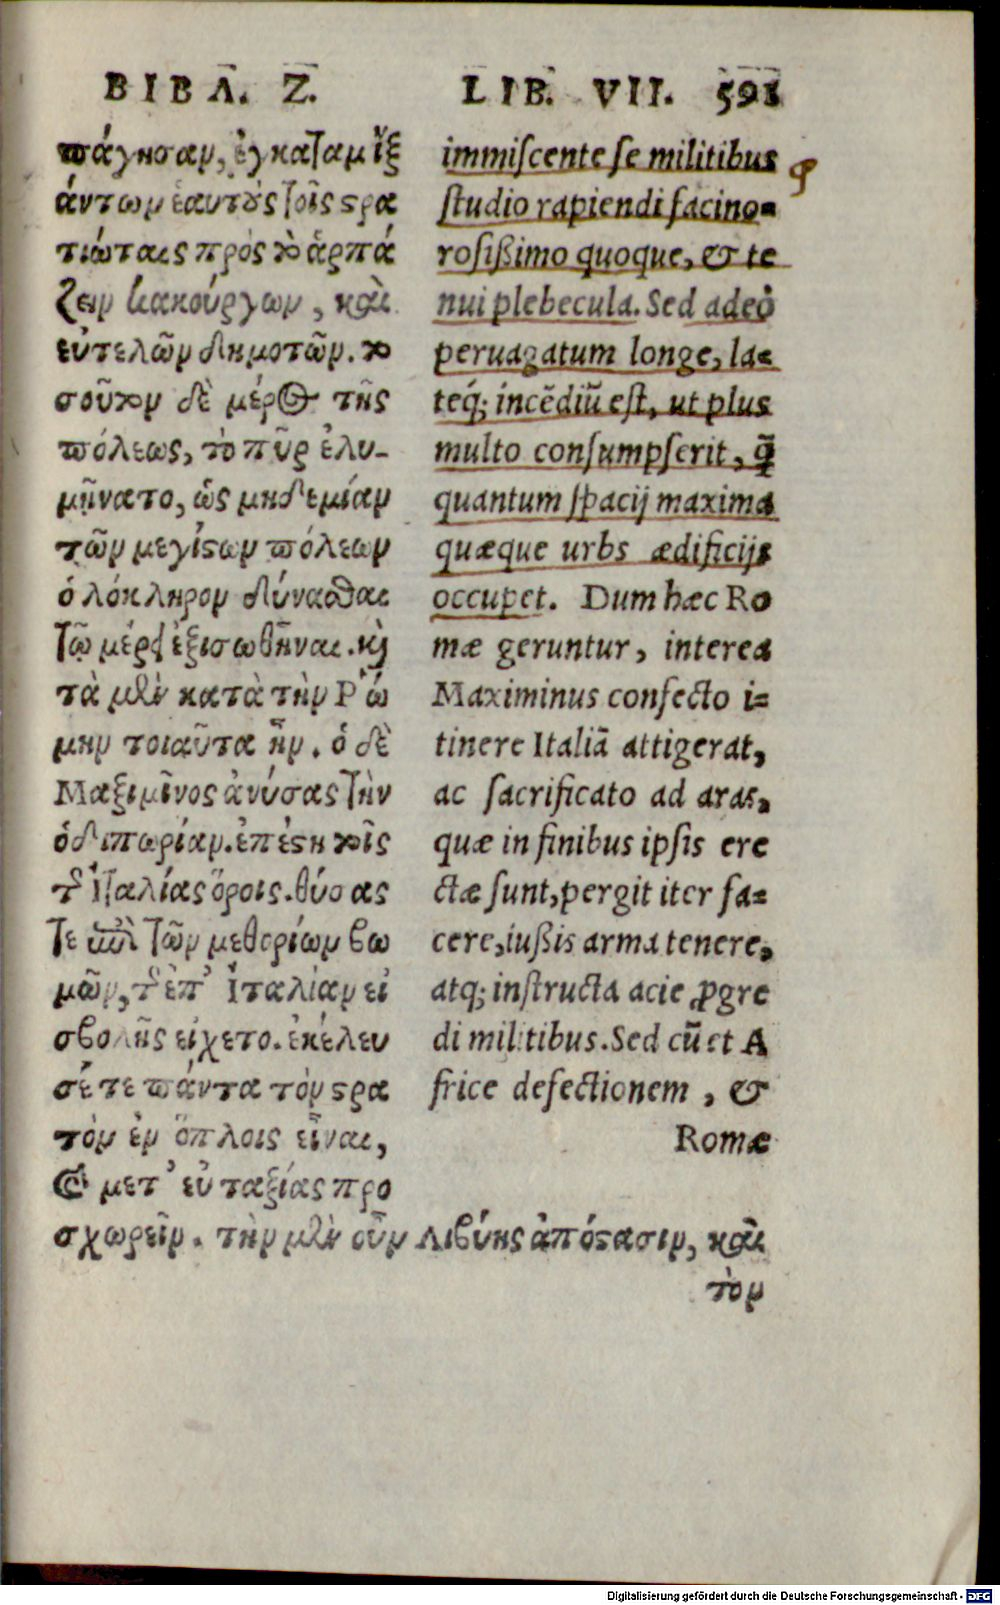 ΒΙΒΛ. Ζ.
πάγησαν, ἐγκαταμιξ
άντων ἑαυτοὺς τοῖς στρα
τιώταις πρὸς τὸ ἁρπά
ζειν κακούργων, καὶ
εὐτελῶν δημοτῶν. το
σοῦτον δὲ μέρος τῆς
πόλεως, τὸ πῦρ ἐλυ-
μῄνατο, ὡς μηδεμίαν
τῶν μεγίστων πόλεων
ὁλόκληρον δύνασθαι
τῷ μέρει ἐξισωθῆναι. καὶ
τὰ μὲν κατὰ τὴν Ῥώ
μην τοιαῦτα ἦν. ὁ δὲ
Μαξιμῖνος ἀνύσας τὴν
ὁδιπωρίαν. ἐπέστη τοῖς
τῆς Ἰταλίας ὅροις. θύσας
τε ἐπὶ τῶν μεθορίων βω
μῶν, τῆς ἐπ' Ἰταλίαν εἰ
σβολῆς εἴχετο. ἐκέλευ
σέ τε πάντα τὸν στρα
τὸν ἐν ὅπλοις εἶναι,
καὶ μετ' εὐταξίας προ
σχωρεῖν. τὴν μὲν οὖν Λιβύης ἀπόστασιν, καὶ
τὸν
LIB. VII. 591
immiscente se militibus
studio rapiendi facino=
rosißimo quoque, & te
nui plebecula. Sed adeò
peruagatum longe, la=
teq́; incẽdiũ est, ut plus
multo consumpserit, q̃
quantum spacij maxima
quæque urbs ædificijs
occupet. Dum hæc Ro
mæ geruntur, interea
Maximinus confecto i=
tinere Italiã attigerat,
ac sacrificato ad aras,
quæ in finibus ipsis ere
ctæ sunt, pergit iter fa=
cere, iußis arma tenere,
atq; instructa acie ꝓgre
di militibus. Sed cũ et A
frice defectionem, &
Romæ
Digitalisierung gefördert durch die Deutsche Forschungsgemeinschaft - DFG